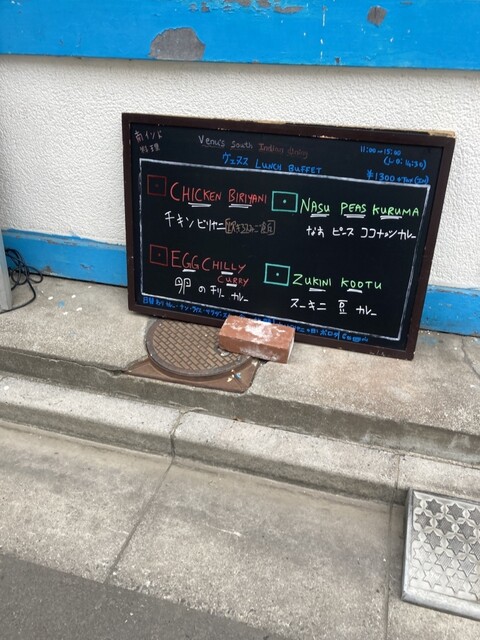 南インド
料理
Venu's South Indian Dining
ヴェヌス LUNCH BUFFET
11:00~15:00
(L.O. 14:30)
¥1300
CHICKEN BIRIYANI
チキン ビリヤニ
NASU PEAS KURUMA
なす ピース ココナッツ カレー
EGG CHILLY
CURRY
卵 の チリー カレー
ZUKINI KOOTU
ズーキニ 豆 カレー